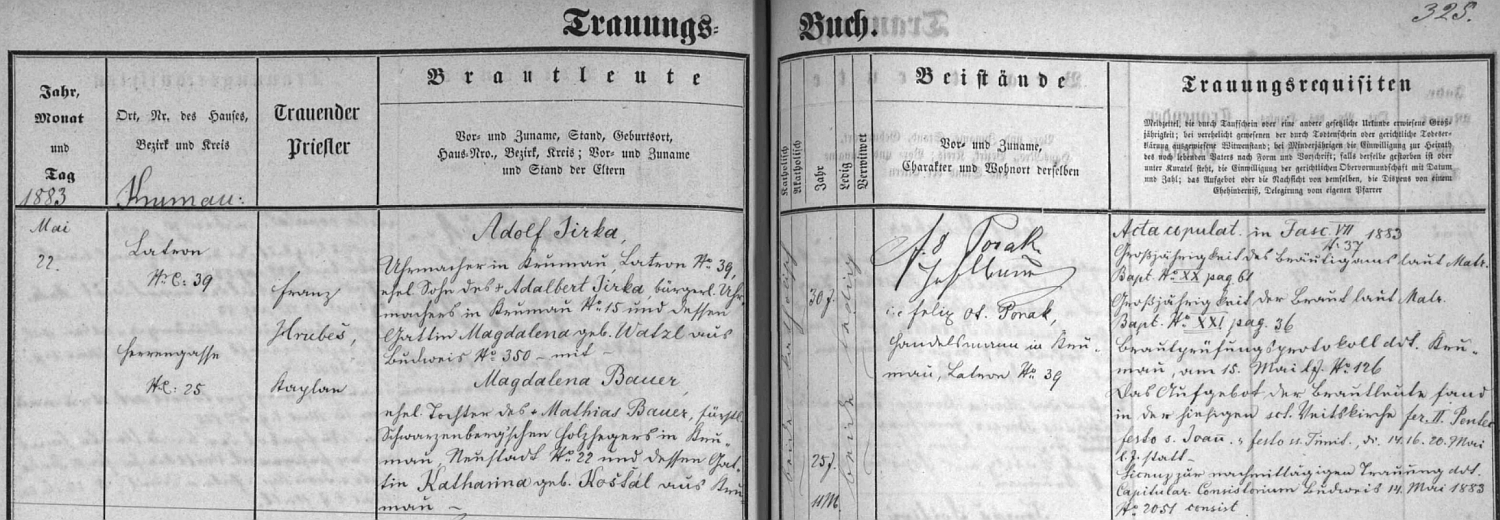 Trauungs-
Buch.
325.
Jahr,
Monat
und
Tag
Ort, Nr. des Hauses,
Bezirk und Kreis
Trauender
Priester
Brautleute
Vor- und Zuname, Stand, Geburtsort,
Haus-Nro., Bezirk, Kreis; Vor- und Zuname
und Stand der Eltern
Katholisch
Akatholisch
Jahr
Ledig
Verwitwet
Beistände
Vor- und Zuname,
Charakter und Wohnort derselben
Trauungsrequisiten
Meldzetel, die durch Taufschein oder das andere gesetzliche Urkunde erwiesene Groß-
jährigkeit; bei verehelicht gewesenen der durch Todtenschein oder gerichtliche Todeser-
klärung ausgewiesene Witwenstand; bei Minderjährigen die Einwilligung zur Heirath
des noch lebenden Vaters nach Form und Vorschrift; falls derselbe gestorben ist oder
unter Kuratel steht, die Einwilligung der gerichtlichen Obervormundschaft mit Datum
und Zahl; das Aufgebot oder die Nachsicht von demselben, die Dispens von einem
Ehehinderniß, Delegirung vom eigenen Pfarrer
1883
Krumau:
Mai
22.
Latron
NC: 39
Herrengasse
NC: 25
Franz
Hrubeš,
Kaplan
Adolf Jirka,
Uhrmacher in Krumau, Latron No 39,
ehel. Sohn des + Adalbert Jirka, bürgerl. Uhr-
machers in Krumau No 15 und dessen
Gattin Magdalena geb. Watzl aus
Budweis No 350 – mit –
Magdalena Bauer,
ehel. Tochter des + Mathias Bauer, fürstl.
Schwarzenberg'schen Holzhegers in Kru-
mau, Neustadt No 22 und dessen Gat-
tin Katharina geb. Košťál aus Kru-
mau –
30 J.
25 J.
11 M.
Porak
i.e. Felix Porak,
Handelsmann in Kru-
mau, Latron No 39
Acta copulat. in Fasc. VII 1883
N. 37
Großjährigkeit des Bräutigams laut Matr.
Bapt. No XX pag. 61
Großjährigkeit der Braut laut Matr.
Bapt. No XXI pag. 36
Brautprüfungsprotokoll ddt. Kru-
mau, am 15. Mai l.J. No 126
Das Aufgebot der Brautleute fand
in der hiesigen sct. Veitskirche fer. II. Pentec.
festo s. Joann. & festo ss. Trinit., d. 14. 16. 20. Mai
l.J. statt –
Licenz zur nachmittägigen Trauung ddt.
Capitular. Consistorium Budweis 14. Mai 1883
No 2051 consist.